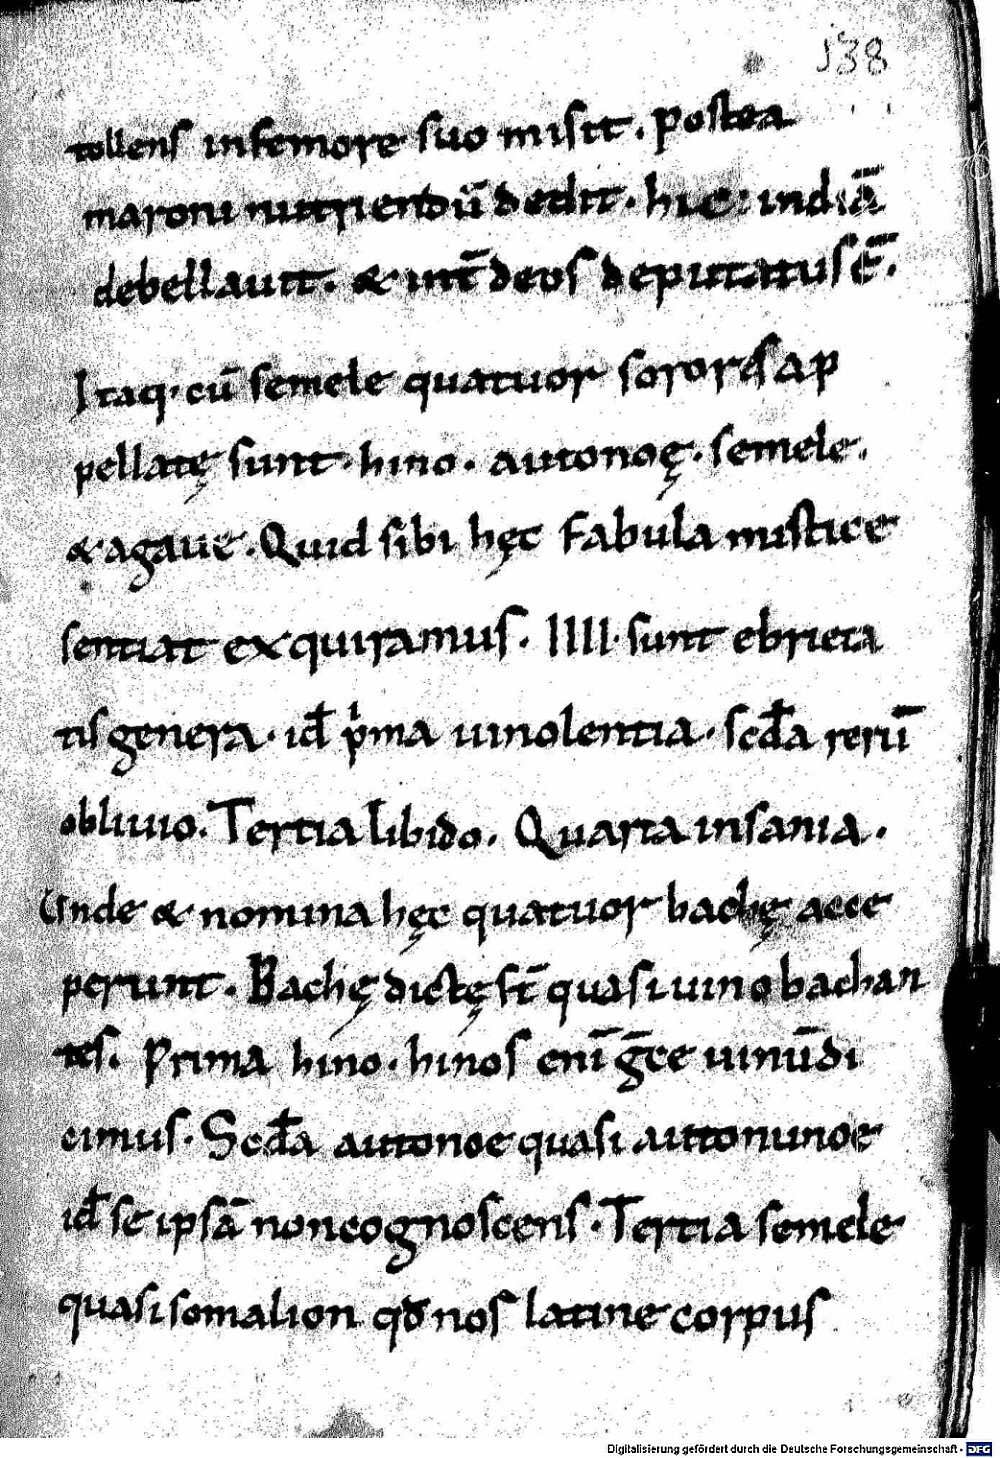 138
tollens infemore suo misit. postea
maroni nutriendū dedit. hic indiā
debellauit. & int̄ deos deputatus ē.
Itaq. cū semele quatuor sorores ap
pellatę sunt. hino. autonoę. semele.
& agaue. Quid sibi hęc fabula mistice
sentiat exquiramus. IIII. sunt ebrieta
tis genera. id̄ pͥma uinolentia. scd̄a rerū
obliuio. Tertia libido. Quarta insania.
Unde & nomina hęc quatuor bachę acce
perunt. Bachę dictę st̄ quasi uino bachan
tes. Prima hino. hinos eni̅ gc̄e uinū di
cimus. Scd̄a autonoe quasi autonunoe
id̄ se ipsā non cognoscens. Tertia semele
quasi somalion qđ nos latine corpus
Digitalisierung gefördert durch die Deutsche Forschungsgemeinschaft - DFG